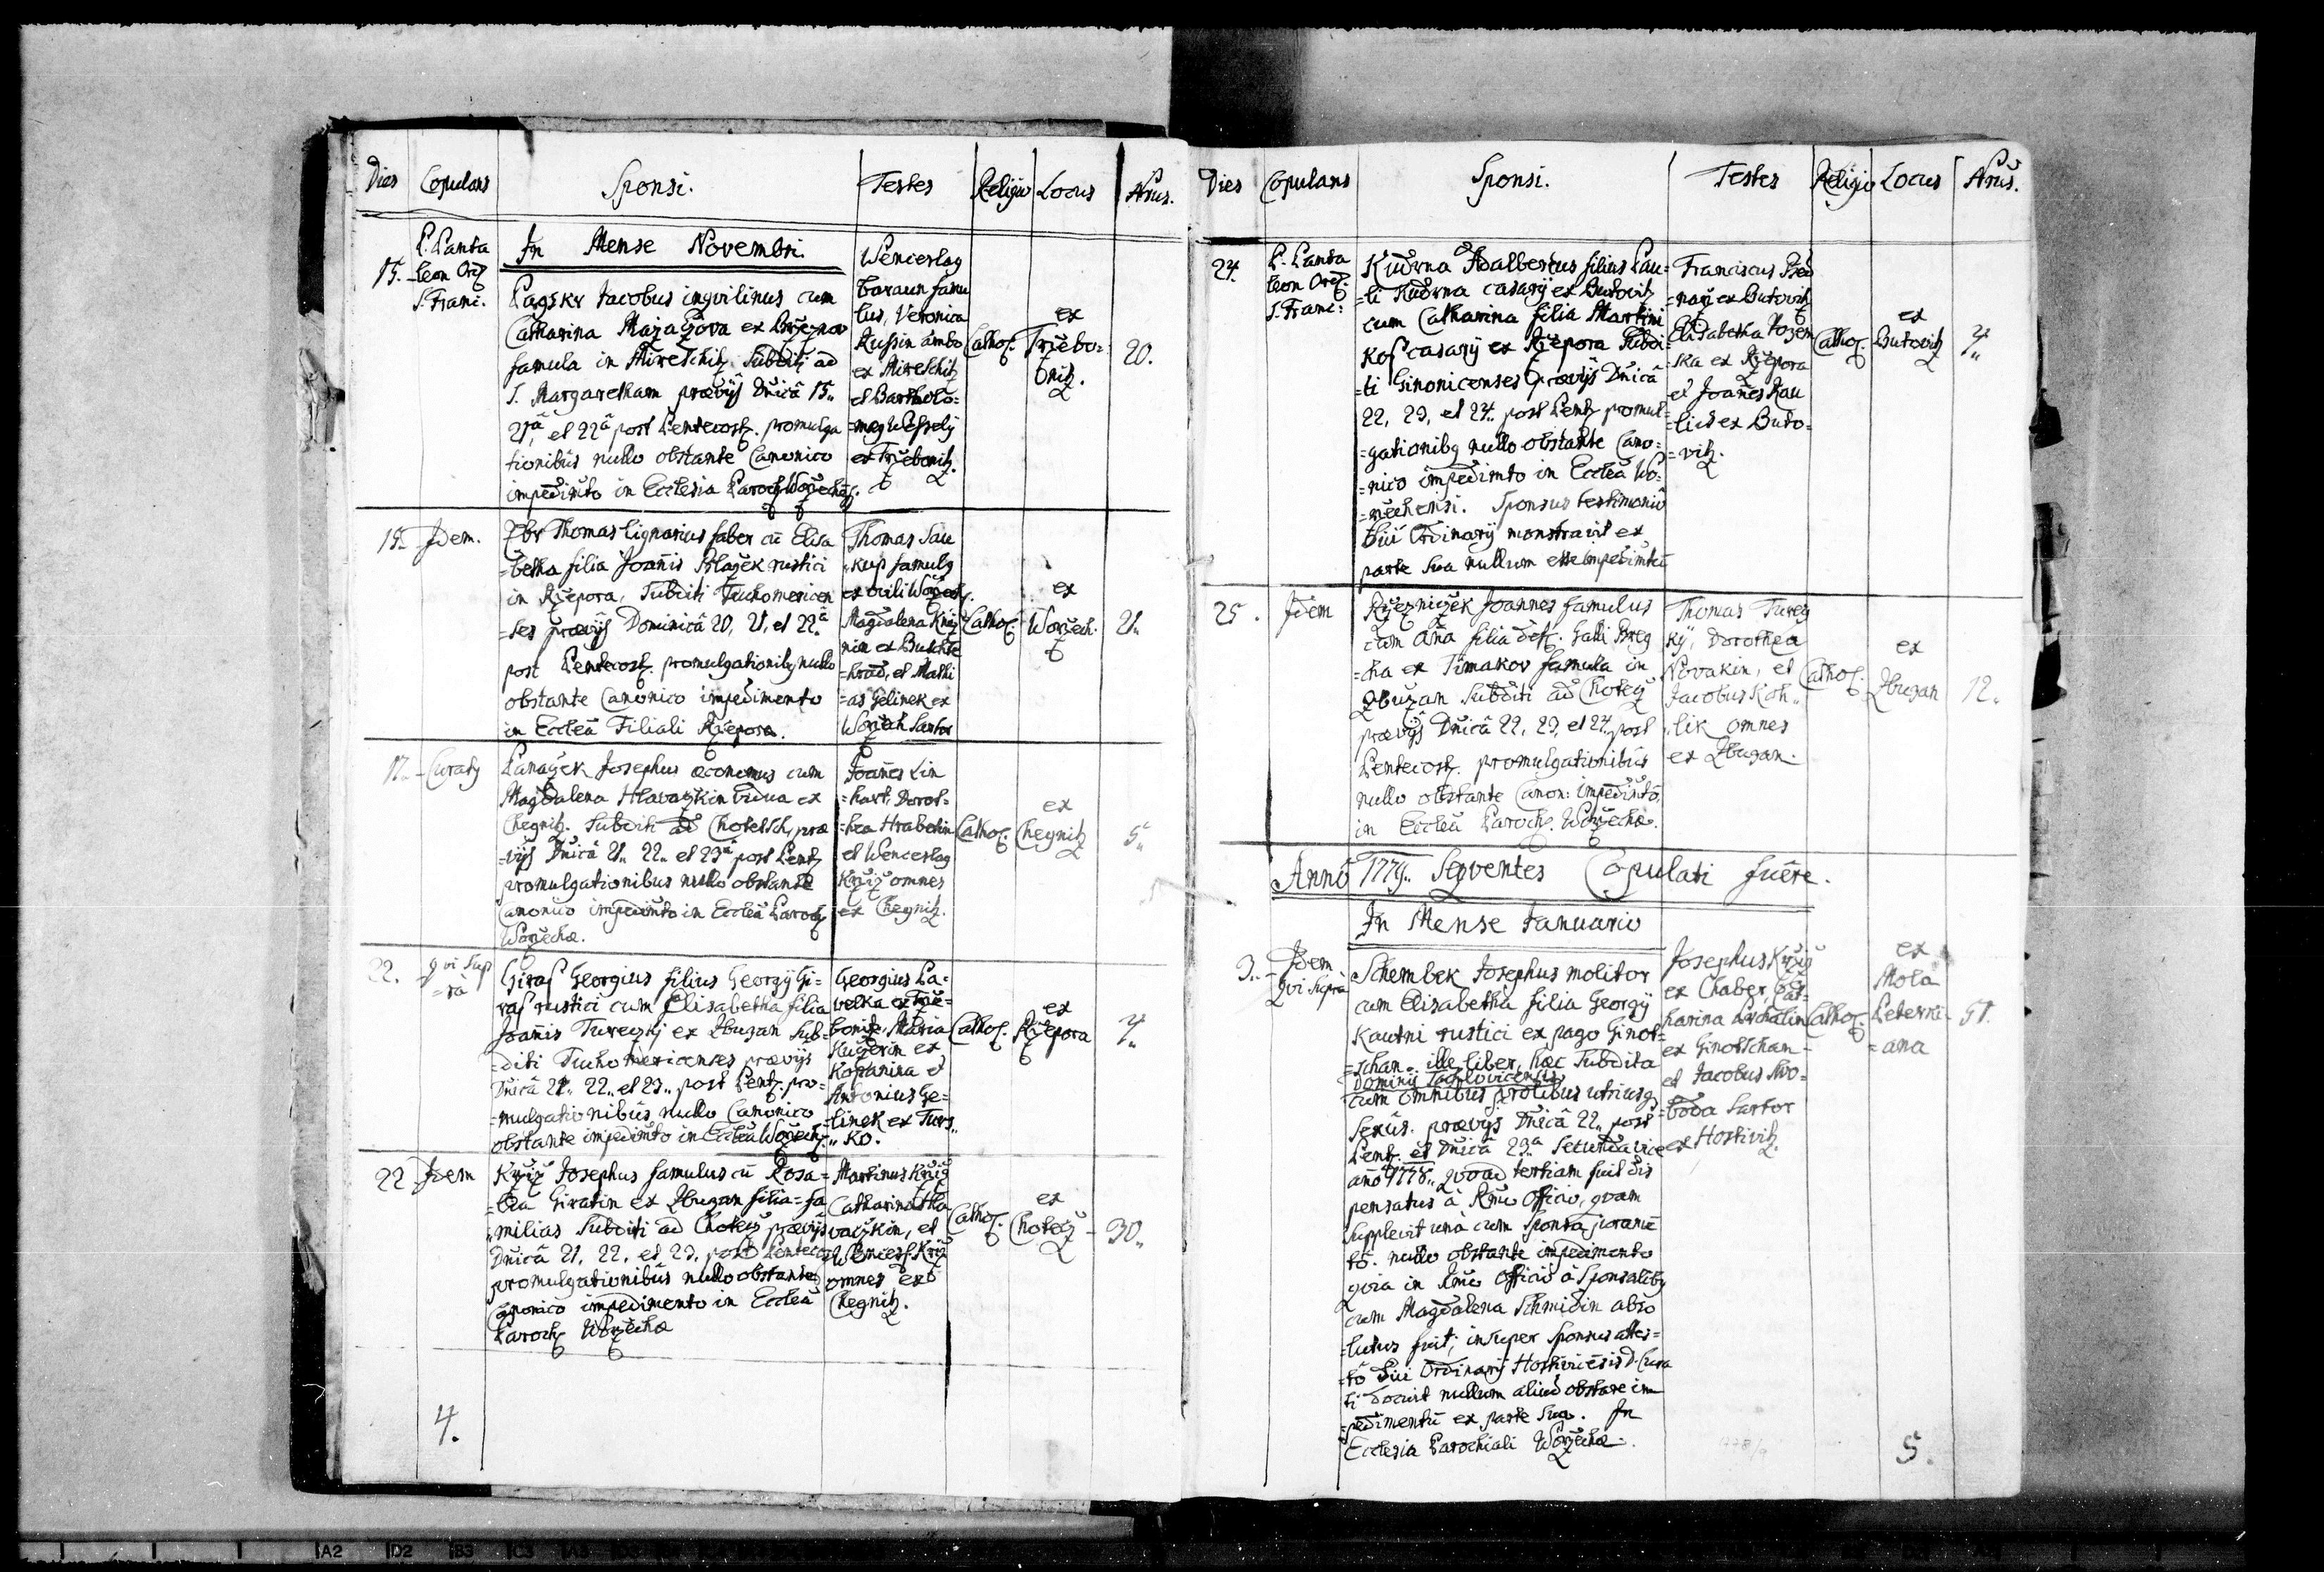 Dies Copulans Sponsi. Testes Religio Locus Nrus.
In Mense Novembri.
15. P. Panta
leon Ord
S. Franc.
Jacobus inqvilinus cum
Catharina ex
famula in Subditi ad
S. Margaretham prævijs Dnicâ 15..
21â, et 22â post Pentecost. promulga
tionibus nullo obstante Canonico
impedimto in Ecclesia Paroch
Wenceslaq
baraun famu
lus, Veronica
ambo
ex
et Bartholo=
=meq Wessely
ex Tržebonitz.
Cathol.
ex
Tržebo=
nitz.
20.
15. Idem.
Thomas lignarius faber cū Elisa
=betha filia Joanis Blažek rustici
in Ržepora, Subditi Tuchomericen
=ses prævijs Dominicâ 20, 21, et 22â
post Pentecost. promulgationibq nullo
obstante Canonico impedimento
in Eccleâ Filiali Ržepora.
Thomas Sau
=kup famulq
Magdalena
nin ex Buchte
=hrad, et Mathi
=as Gelinek ex
Woržech Sartor
Cathol.
ex
Woržech.
21.
17. Curatq
Panaczek Josephus œconomus cum
Magdalena vidua ex
Chegnitz. Subditi ad præ
=vijs Dnicâ 21.. 22.. et 23â post Pent
promulgationibus nullo obstante
Canonico impedimto in Eccleâ Paroch
Woržechæ.
Joanes Lin
=hart, Dorot=
=hea Hrabetin
et Wenceslaq
Kržiž omnes
ex Chegnitz.
Cathol.
ex
Chegnitz
5..
22. qvi sup
=ra
Georgius filius Georgij Gi=
rustici cum Elisabetha filia
Joanis ex Zbuzan Sub=
=diti Tuchomericenses prævijs
Dnicâ 21.. 22.. et 23.. post Pent. pro=
=mulgationibus nullo Canonico
obstante impedimto in Eccleâ Woržech
Georgius Pa=
velka ex Trže=
bonitz, Maria
ex
Kopanina et
Antonius Ge=
=linek ex Turs..
..ko.
Cathol.
ex
Ržepora
7..
22 Idem
Kržiž Josephus famulus cū Rosa=
=lia ex Zbuzan filia=fa
..milias Subditi ad Choteč prævijs
Dnicâ 21, 22, et 23, post Pentec
promulgationibus nullo obstante
Canonico impedimento in Eccleâ
Paroch Woržechæ
Martinus Kržiž
Catharina Hla
vaczkin, et
Wencesl. Kržiž
omnes ex
Chegnitz.
Cathol.
ex
Choteč
30..
4.
Dies Copulans Sponsi. Testes Religio Locus Nrus.
24. P. Panta
leon Ord.
S. Franc:
Kudrna Adalbertus filius Pau=
=li Kudrna casarij ex Butovitz
cum Catharina filia Martini
casarij ex Ržepora Subdi
=ti Ginonicenses prævijs Dnicâ
22, 23, et 24.. post Pent. promul=
=gationibq nullo obstante Cano=
=nico impedimto in Eccleâ Wo=
=ržechensi. Sponsus testimoniū
Sui Ordinarij monstravit ex
parte sua nullum esse impedimtū
Franciscus
ex Butovitz
Elisabetha
ska ex Ržepora
et Joañes
ex Buto=
=vitz.
Cathol.
ex
Butovitz
7..
25. Idem
Joannes famulus
cum Aña filia def. Galli
ex Timakov famula in
Zbuzan Subditi ad Choteč
prævijs Dnicâ 22, 23, et 24.. post
Pentecost. promulgationibus
nullo obstante Canon: impedimto,
in Eccleâ Paroch. Woržechæ.
Thomas
Dorothea
Novakin, et
Jacobus Koh..
..lik omnes
ex Zbuzan.
Cathol.
ex
Zbuzan
12.
Anno 1779.. Seqventes Copulati fuêre.
In Mense Januario
3. Idem
qvi supra
Schembek Josephus molitor
cum Elisabetha filia Georgij
Kautni rustici ex pago Ginot=
=schan. ille liber, hæc Subdita
Dominij Tachlovicensis
cum omnibus prolibus utriusq
Sexûs. prævijs Dnicâ 22.. post
Pent. et Dnicâ 23.a Secunda vice
año 1778.. qvoad tertiam fuit dis
pensatus à Rmo Officio, qvam
Supplevit unà cum Sponsa juramē
to. nullo obstante impedimento
qvia in Rmo Officio à Sponsalibq
cum Magdalena Schmidin abso
=lutus fuit; insuper Sponsus attes=
=to Sui Ordinarij Hostivicēsis D. Cura
ti docuit nullum aliud obstare im
=pedimentū ex parte sua. In
Ecclesia Parochiali Woržechæ.
Josephus Kržiž
ex Chaber, Cat=
harina
ex Ginotschan=
et Jacobus Swo=
=boda Sartor
ex Hostivitz.
Cathol.
ex
Mola
=ana
51.
5.